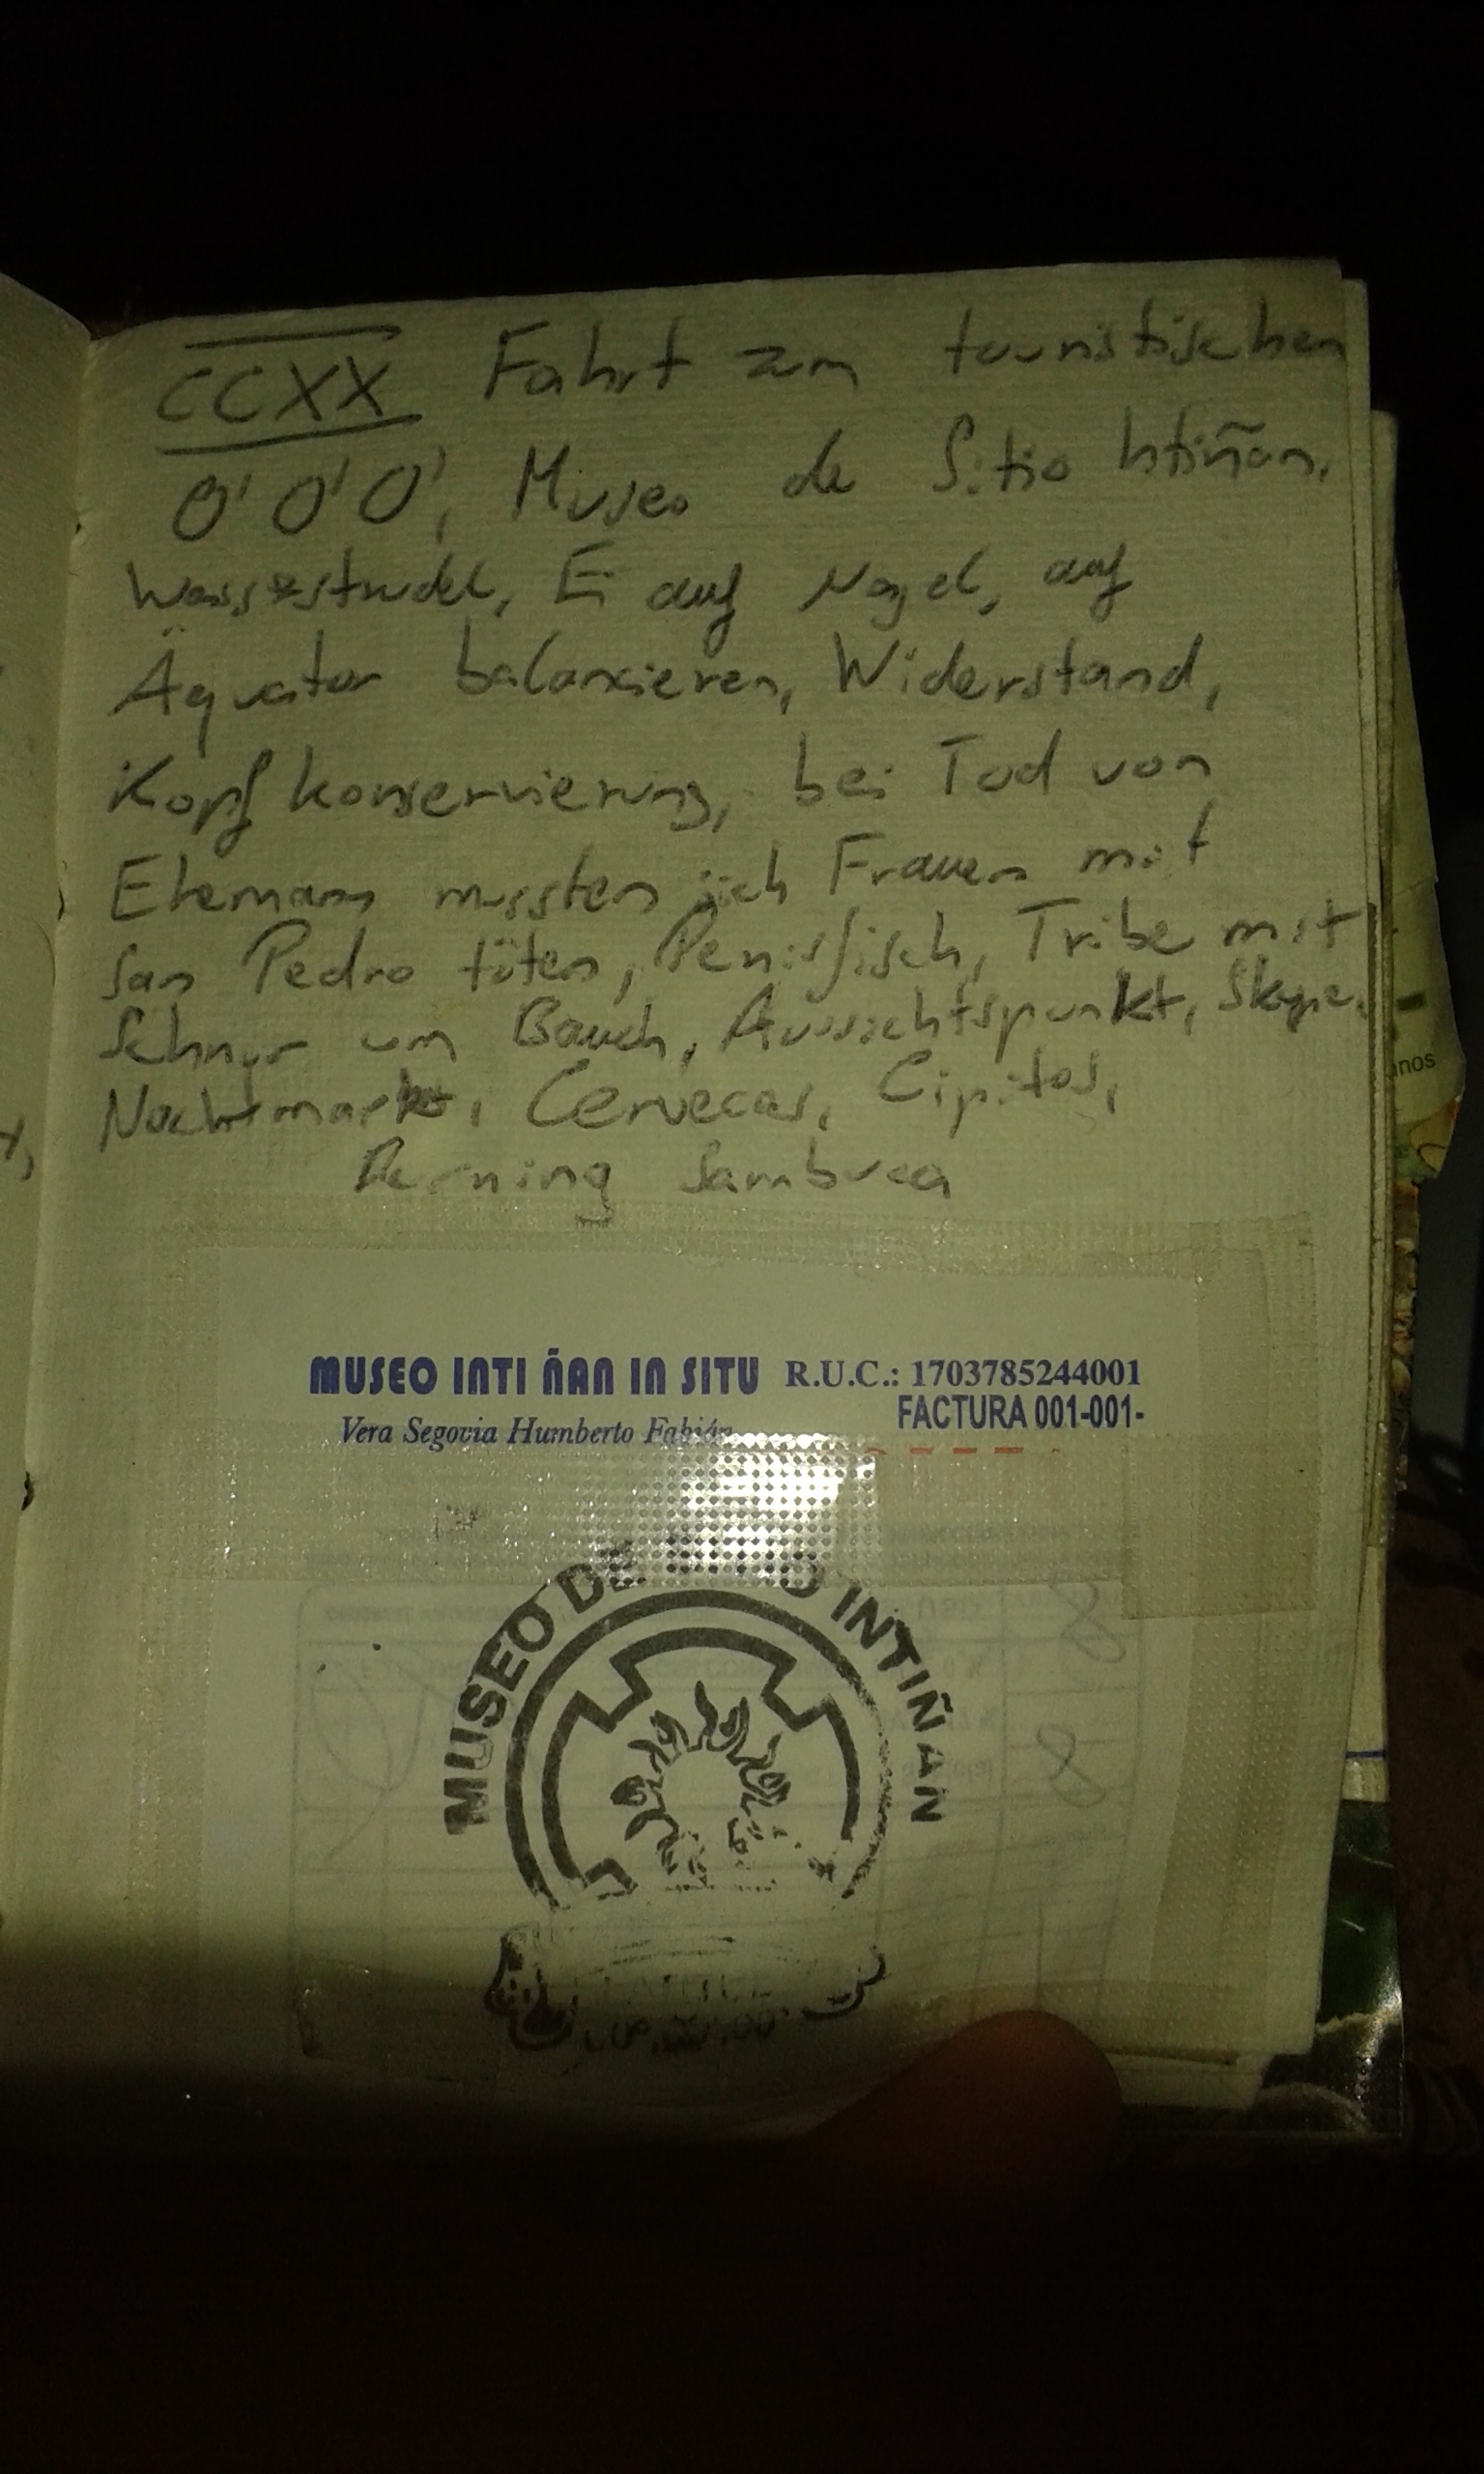 CCXX Fahrt zum touristischen
0' 0' 0', Museo de Sitio Intiñan,
Wasserstrudel, Ei auf Nagel, auf
Äquator balancieren, Widerstand,
Kopfkonservierung, bei Tod von
Ehemann mussten sich Frauen mit
San Pedro töten, Penisfisch, Tribe mit
Schnur um Bauch, Aussichtspunkt, Skype,
Nachtmarkt, Cervecas,
Sambuca
MUSEO INTI ÑAN IN SITU R.U.C.: 1703785244001
Vera Segovia Humberto Fabián FACTURA 001-001-
MUSEO DE SITIO INTIÑAN
8
8
anos